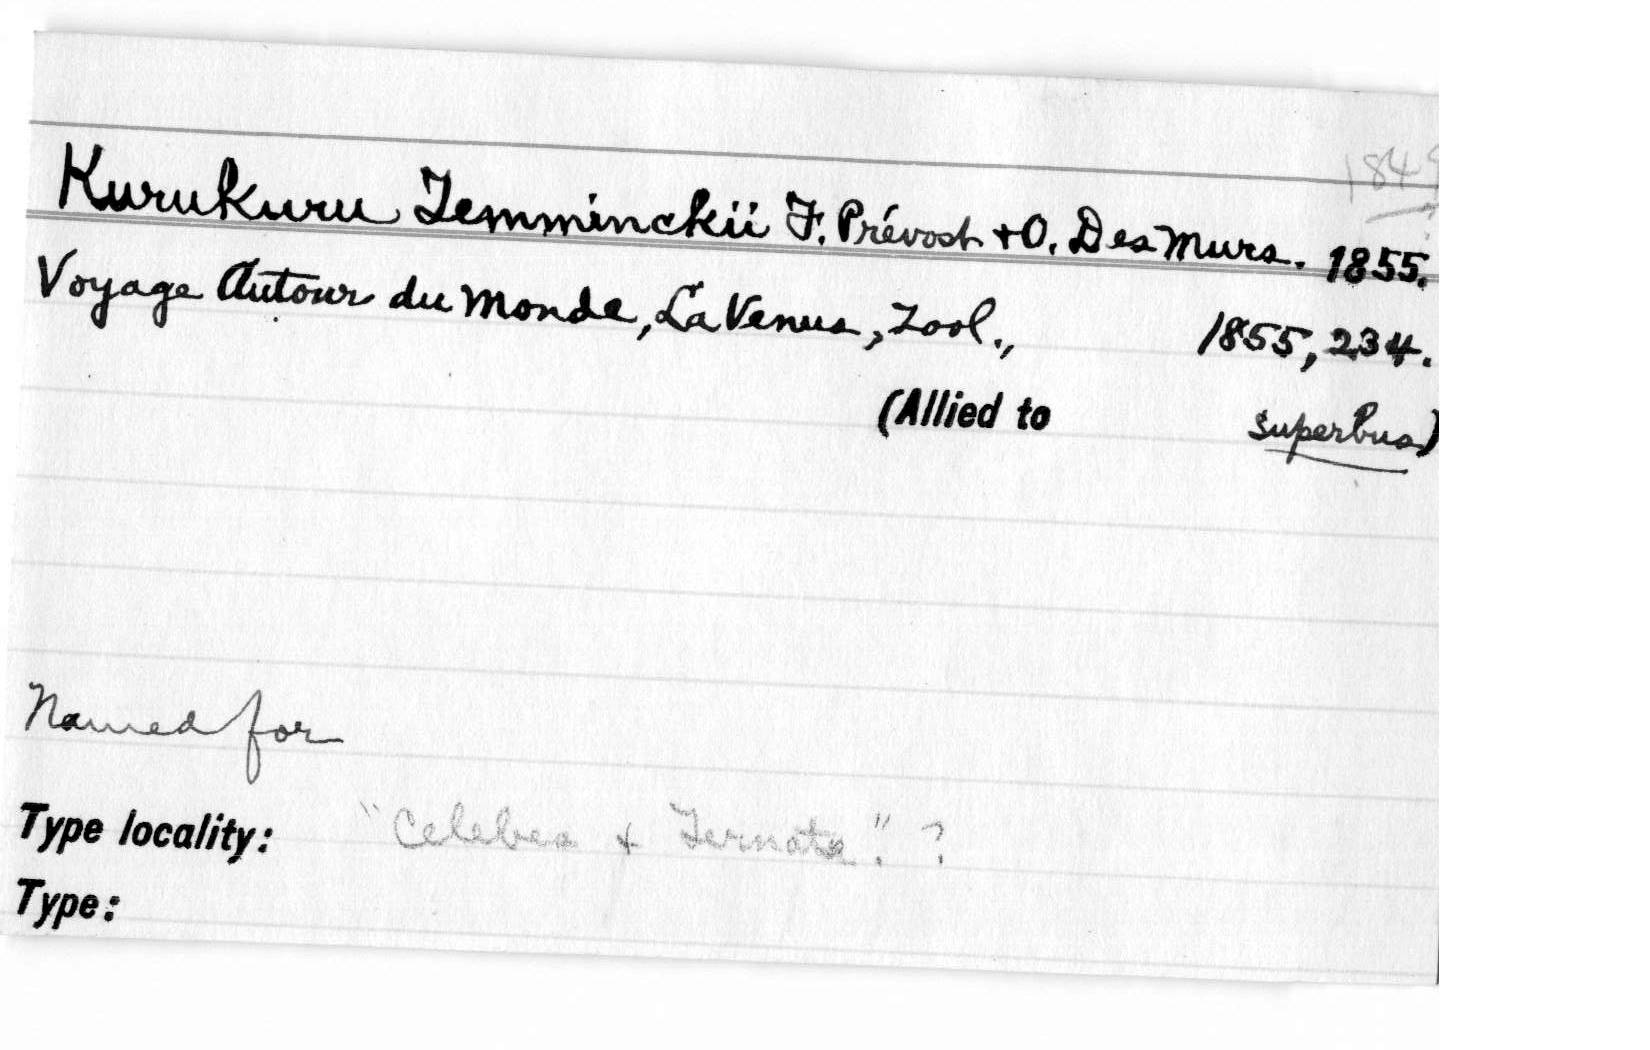 Kurukuru Temminckii F. Prévost + O. Des Murs. 1855.
Voyage Autour du Monde, La Venus, Zool., 1855, 234.
(Allied to superbus)
Named for
Type locality: "Celebes + Ternate." ?
Type: